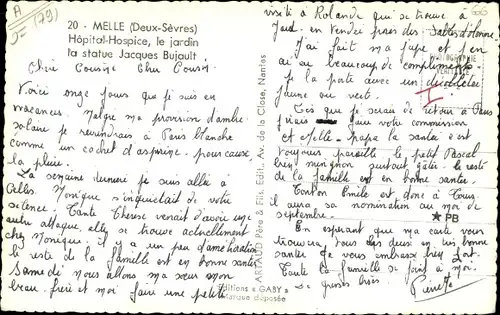 A
J= (79)
20 - MELLE (Deux-Sèvres)
Hôpital-Hospice, le jardin
la statue Jacques Bujault
Chère Cousine Cher Cousin.
Voici onze jours que je suis en
vacances. Malgré ma provision d'ambre
solaire je reviendrais à Paris blanche
comme un cachet d'aspirine, pour cause
la pluie.
La semaine dernière je suis allée à
Celles. Monique s'inquiétait de votre
silence. Tante Thérèse venait d'avoir une
autre attaque, elle se trouve actuellement
chez Monique. il y a un peu d'amélioration
le reste de la famille est en bonne santé.
Samedi nous allons ma sœur mon
beau-frère et moi faire une petite
visite à Rolande qui se trouve à
en Vendée près des Sables d'Olonne.
J'ai fait ma jupe et j'en
ai eu beaucoup de compliments.
je la porte avec un
jaune ou vert.
Dès que je serai de retour à Paris
j'irais faire votre commission
à Melle. papa la santé est
toujours pareille le petit Pascal
bien mignon surtout gâté. le reste
de la famille est en bonne santé.
Tonton Emile est donc à
il aura sa nomination au moi de
septembre.
En espérant que ma carte vous
trouvera tous les deux en très bonne
santé je vous embrasse bien fort.
Toute la famille se joint à moi.
de grosses bises.
Pierrette
PHOTOGRAPHIE
VÉRITABLE
★ PB
ARTAUD Père & Fils Édit., Av. de la Close, Nantes
Éditions « GABY »
Marque déposée